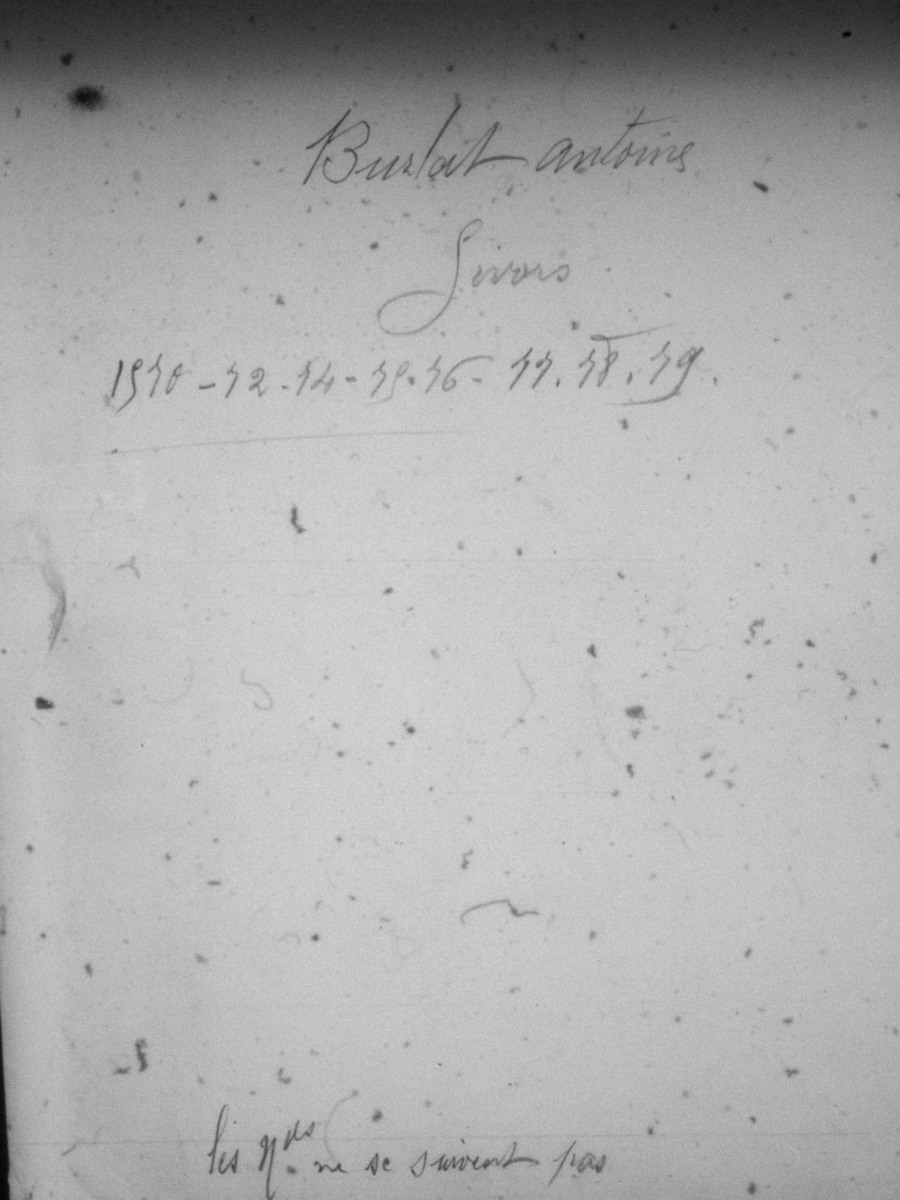 Burlat antoine
Givors
1970 - 72 - 74 - 75 - 76 - 77. 78. 79.
les nos ne se suivent pas